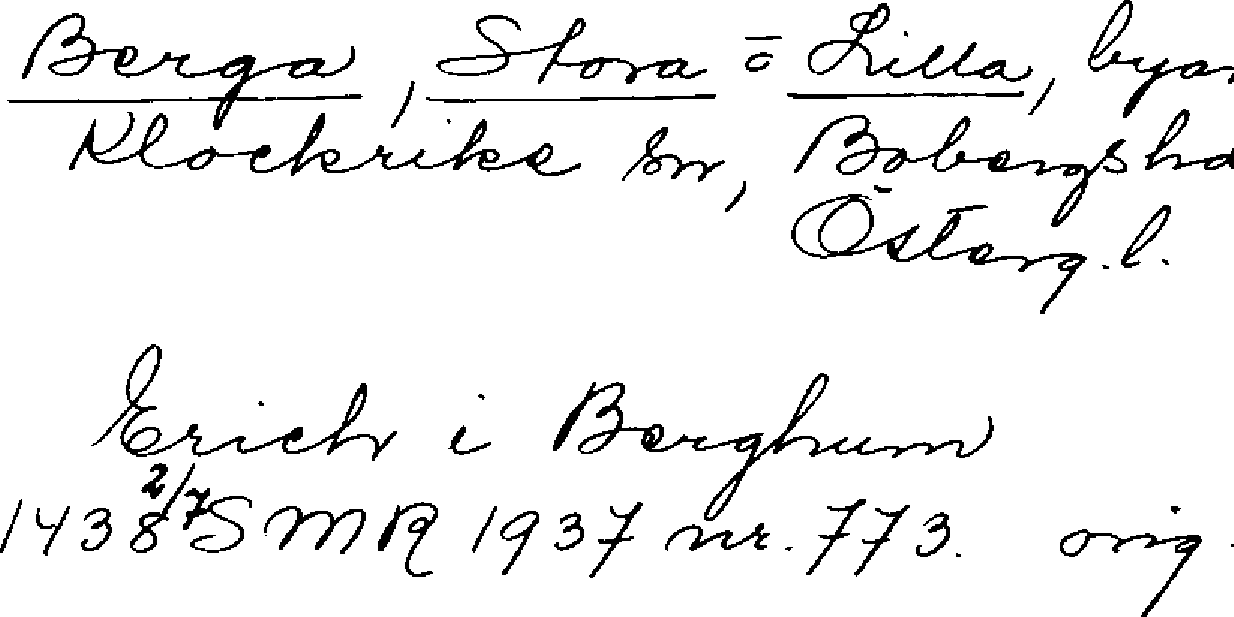 Berga, Stora o Lilla, byar
Klockrike sn, Bobergs hd
Österg. l.
Erich i Berghum
1438 2/7 SMR 1937 nr. 773. orig.